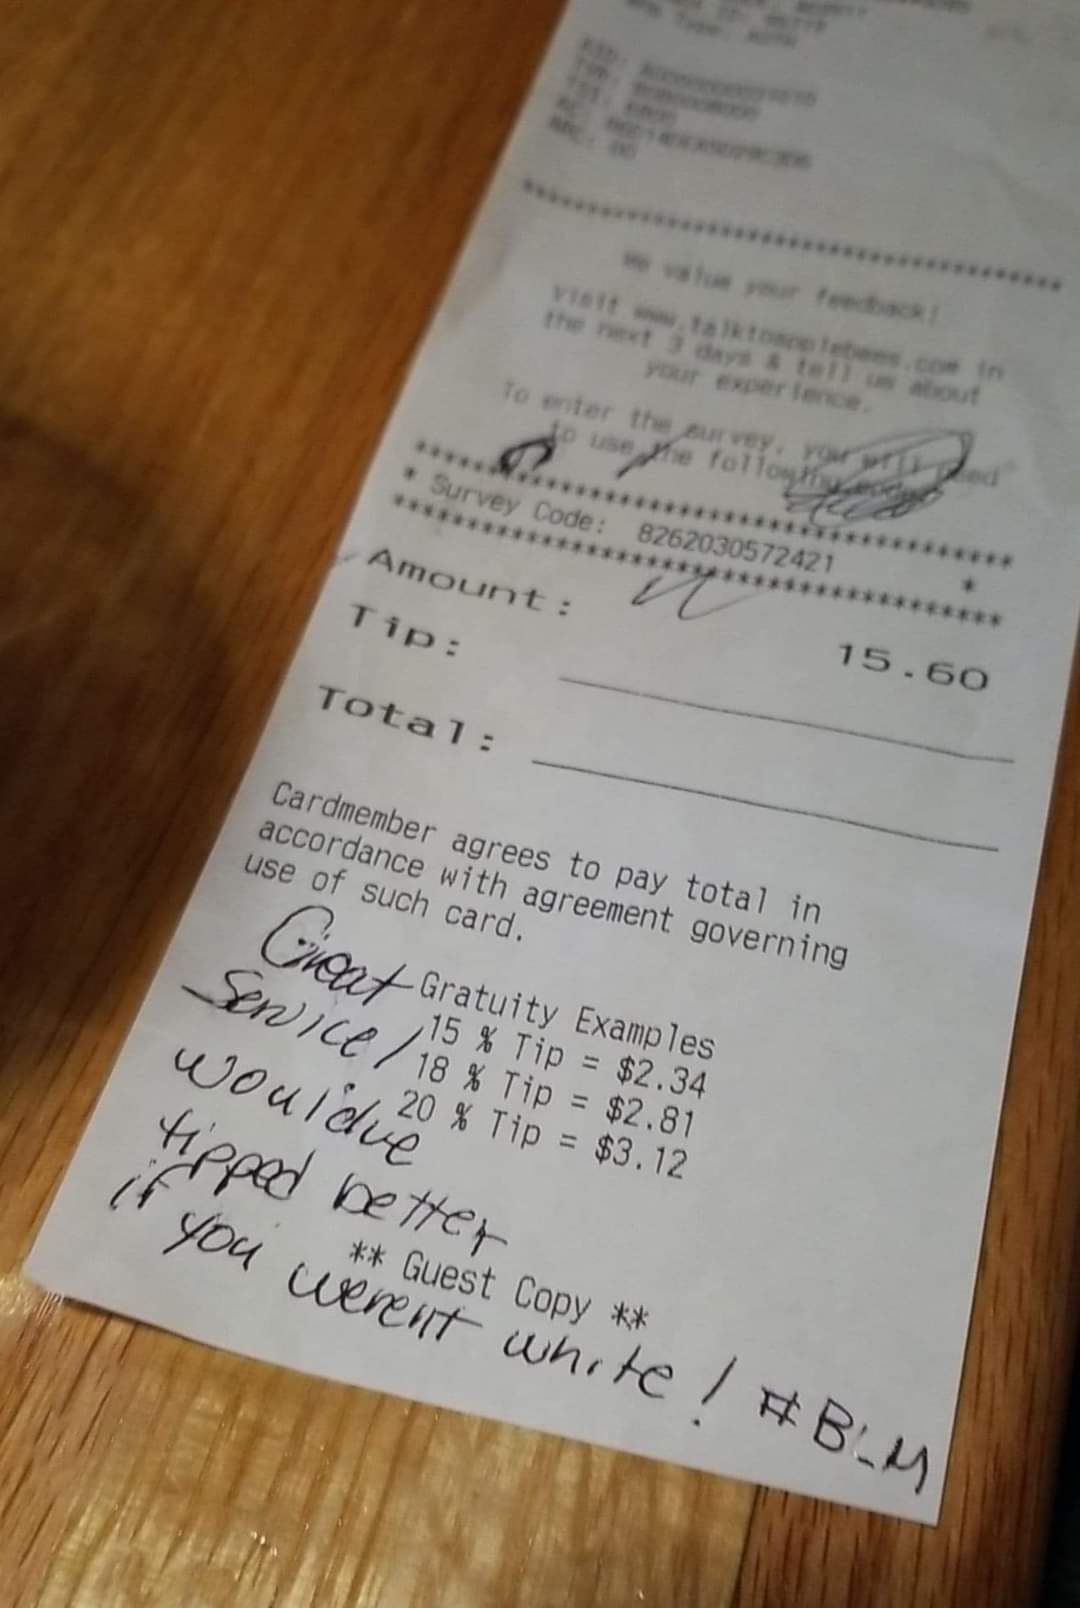 TSI: 6800
ARC: 00
****************************************
We value your feedback!
Visit www.talktoapplebees.com in
the next 3 days & tell us about
your experience.
To enter the survey, you will need
to use the following code:
****************************************
* Survey Code: 8262030572421 *
****************************************
Amount: 15.60
Tip:
Total:
Cardmember agrees to pay total in
accordance with agreement governing
use of such card.
Great Gratuity Examples
Service / 15 % Tip = $2.34
18 % Tip = $2.81
would've 20 % Tip = $3.12
tipped better
if you ** Guest Copy **
werent white! #BLM